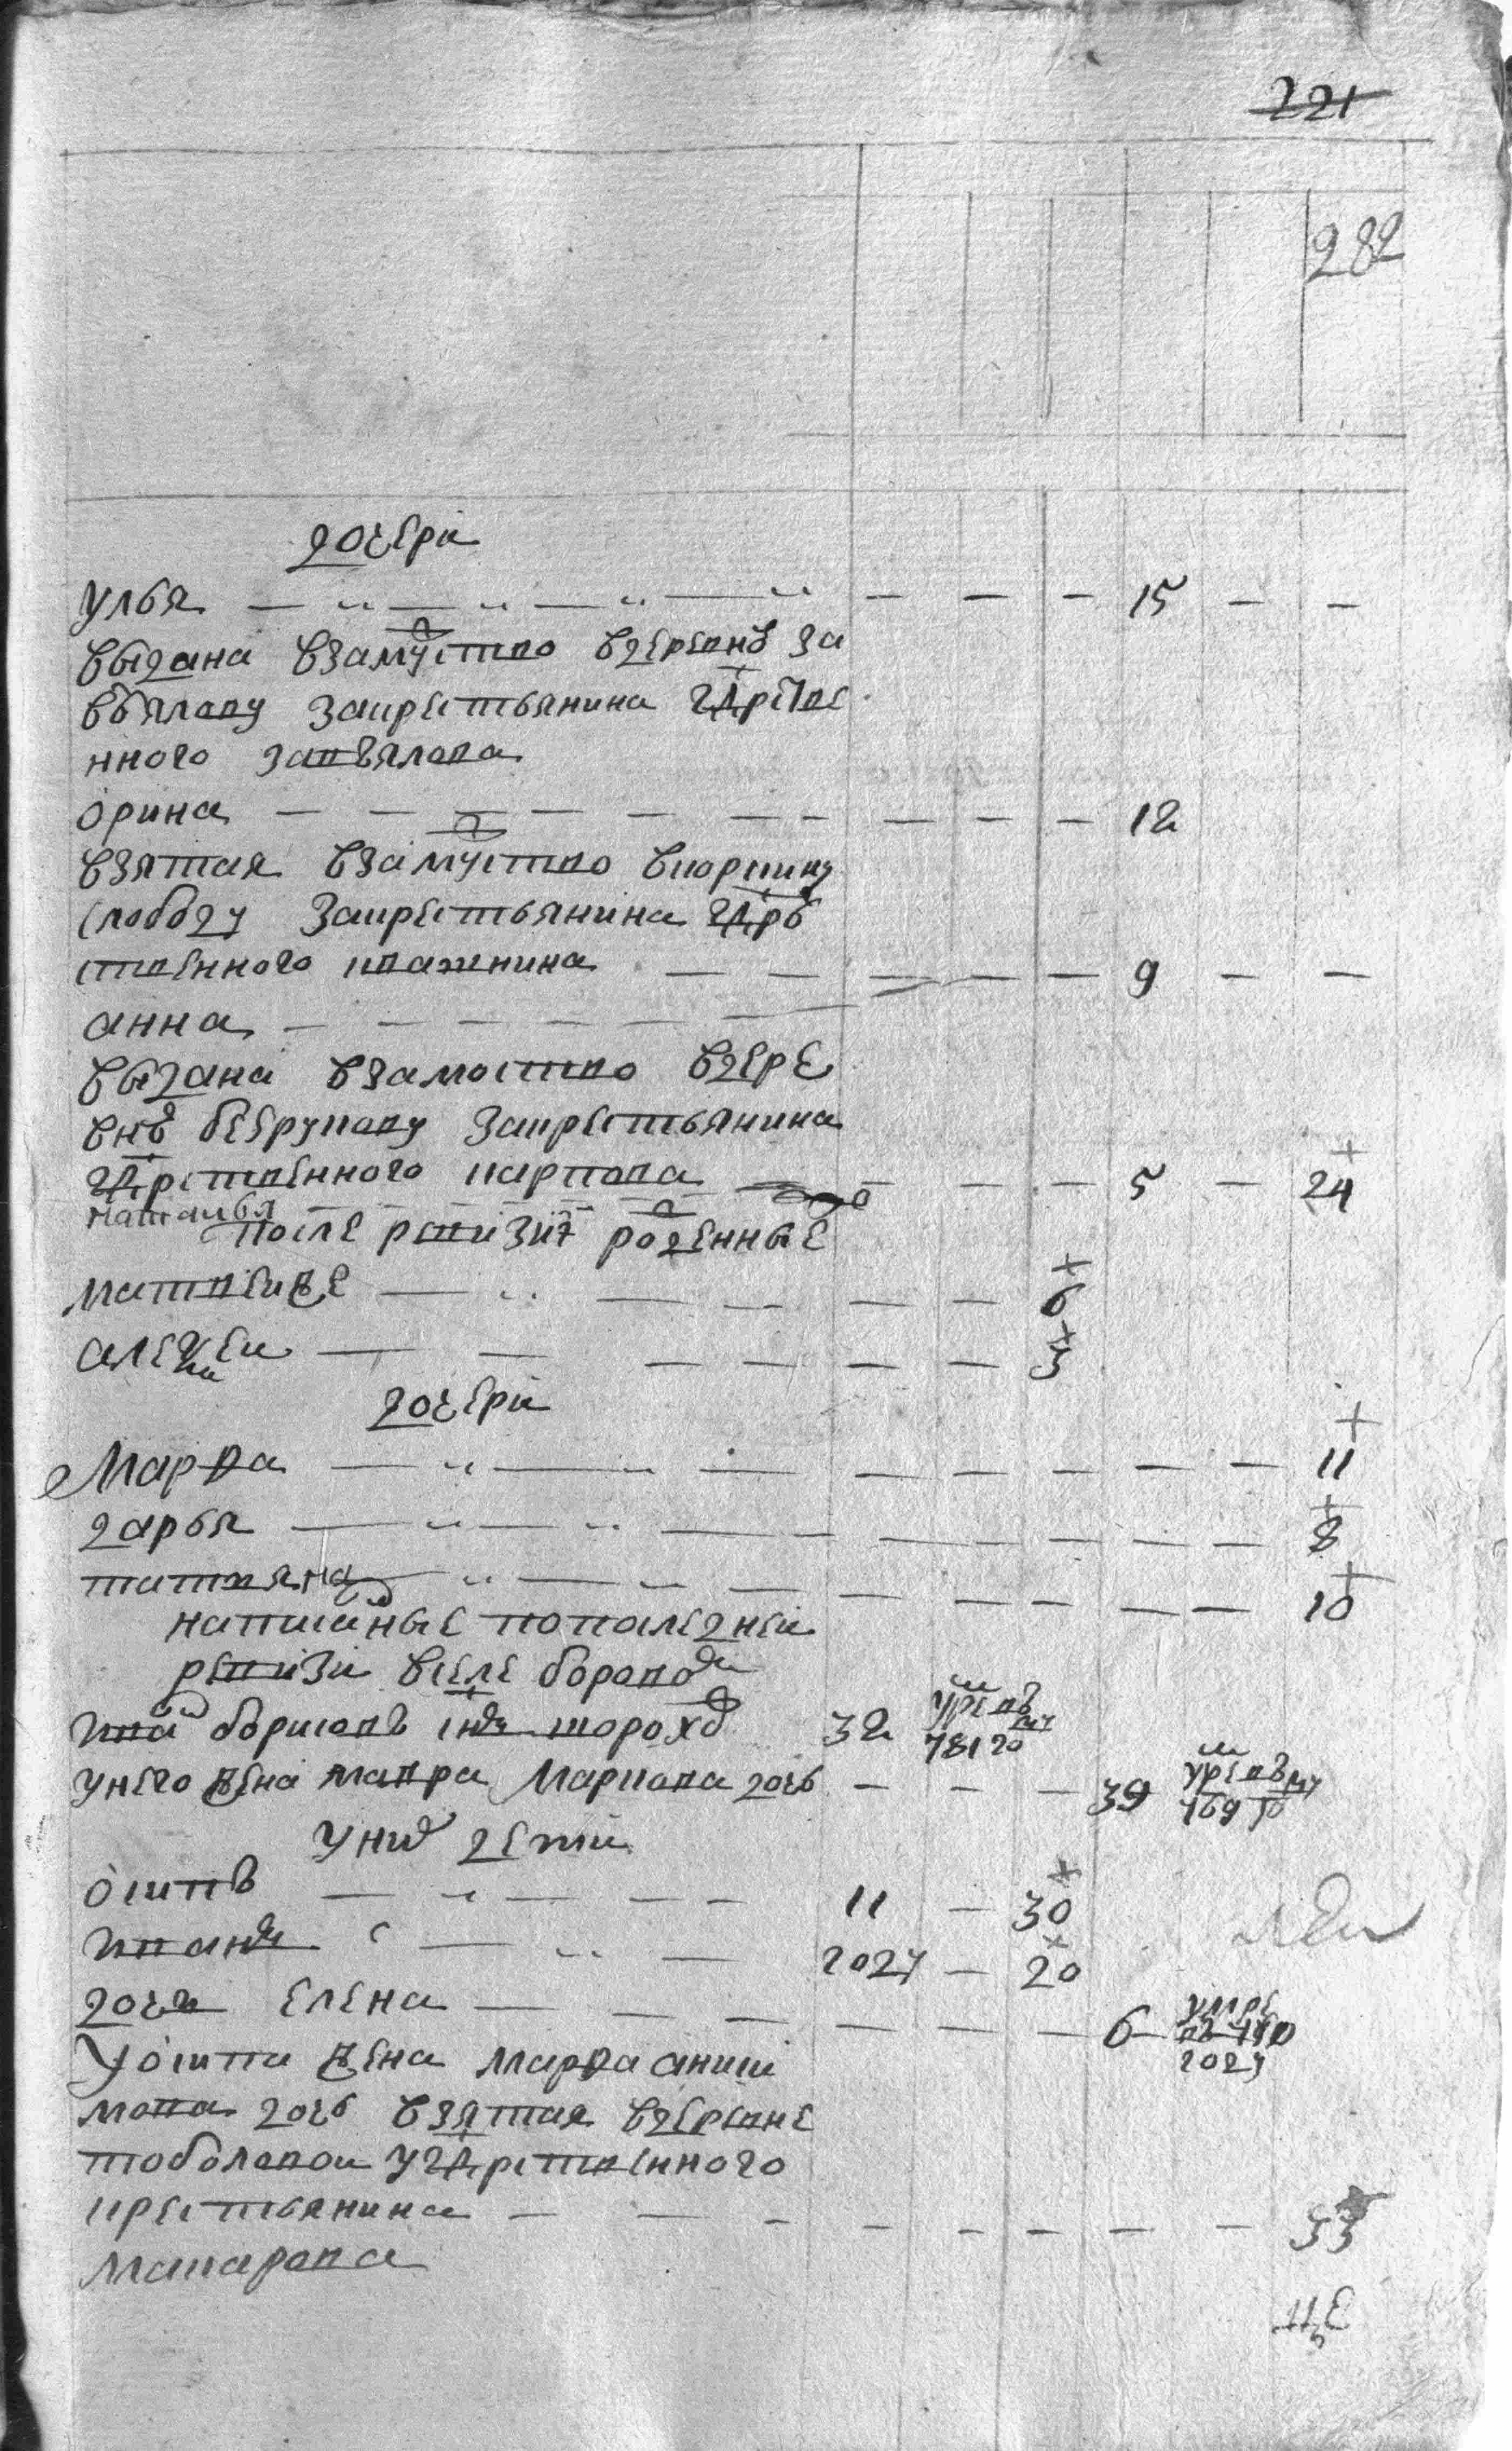 221
282
дочери
улья — — — — — — — 15 — —
выдана взамуство вдеревнѣ за
вьялову закрестьянина гдрстве
нного завьялова
орина — — — — — — — — — — 12
взятая взамуство вкоркину
слободу закрестьянина гдрь
ственного квашнина — — — — — 9 — —
анна — — — — — —
выдана взамоство вдере
внѣ безрукову закрестьянина
гдрственного карпова — — — 5 — 24
наталья
после ревизиї роденные
матвеиже — — — — — — 6
алексеи — — — — — — — 3
дочери
Марфа — — — — — — — — 11
дарья — — — — — — — — 8
татияна — — — — — — — 10
написаные попоследнеи
ревизи вселе боровом
иван борисовъ сынъ шорохов 32 умре въ 781 го
унего жена мавра Маркова дочь — — — 39 умре въ 789 го
уних дети
осипъ — — — — 11 — 30
иванъ — — — 2 году — 20
дочь елена — — — — — — 6 умре
въ 780
году
Уосипа жена марфа аниси
мова дочь взятая вдеревне
тоболовои угдрственного
крестьянина — — — — — — — — 33
макарова